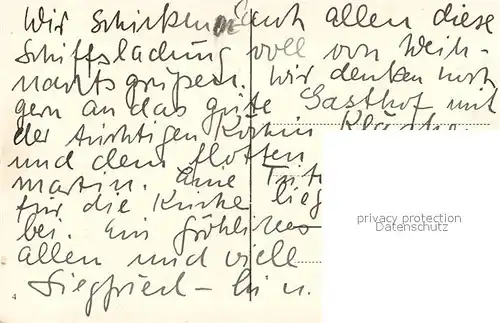 Wir schicken Euch allen diese
Schiffsladung voll von Weih-
nachtsgrüßen. Wir denken noch
gern an das gute Gasthof mit
der tüchtigen Köchin
und dem flotten
Martin. Eine
für die Küche lieg
bei. Ein fröhliches
allen und viell
Siegfried -
privacy protection
Datenschutz